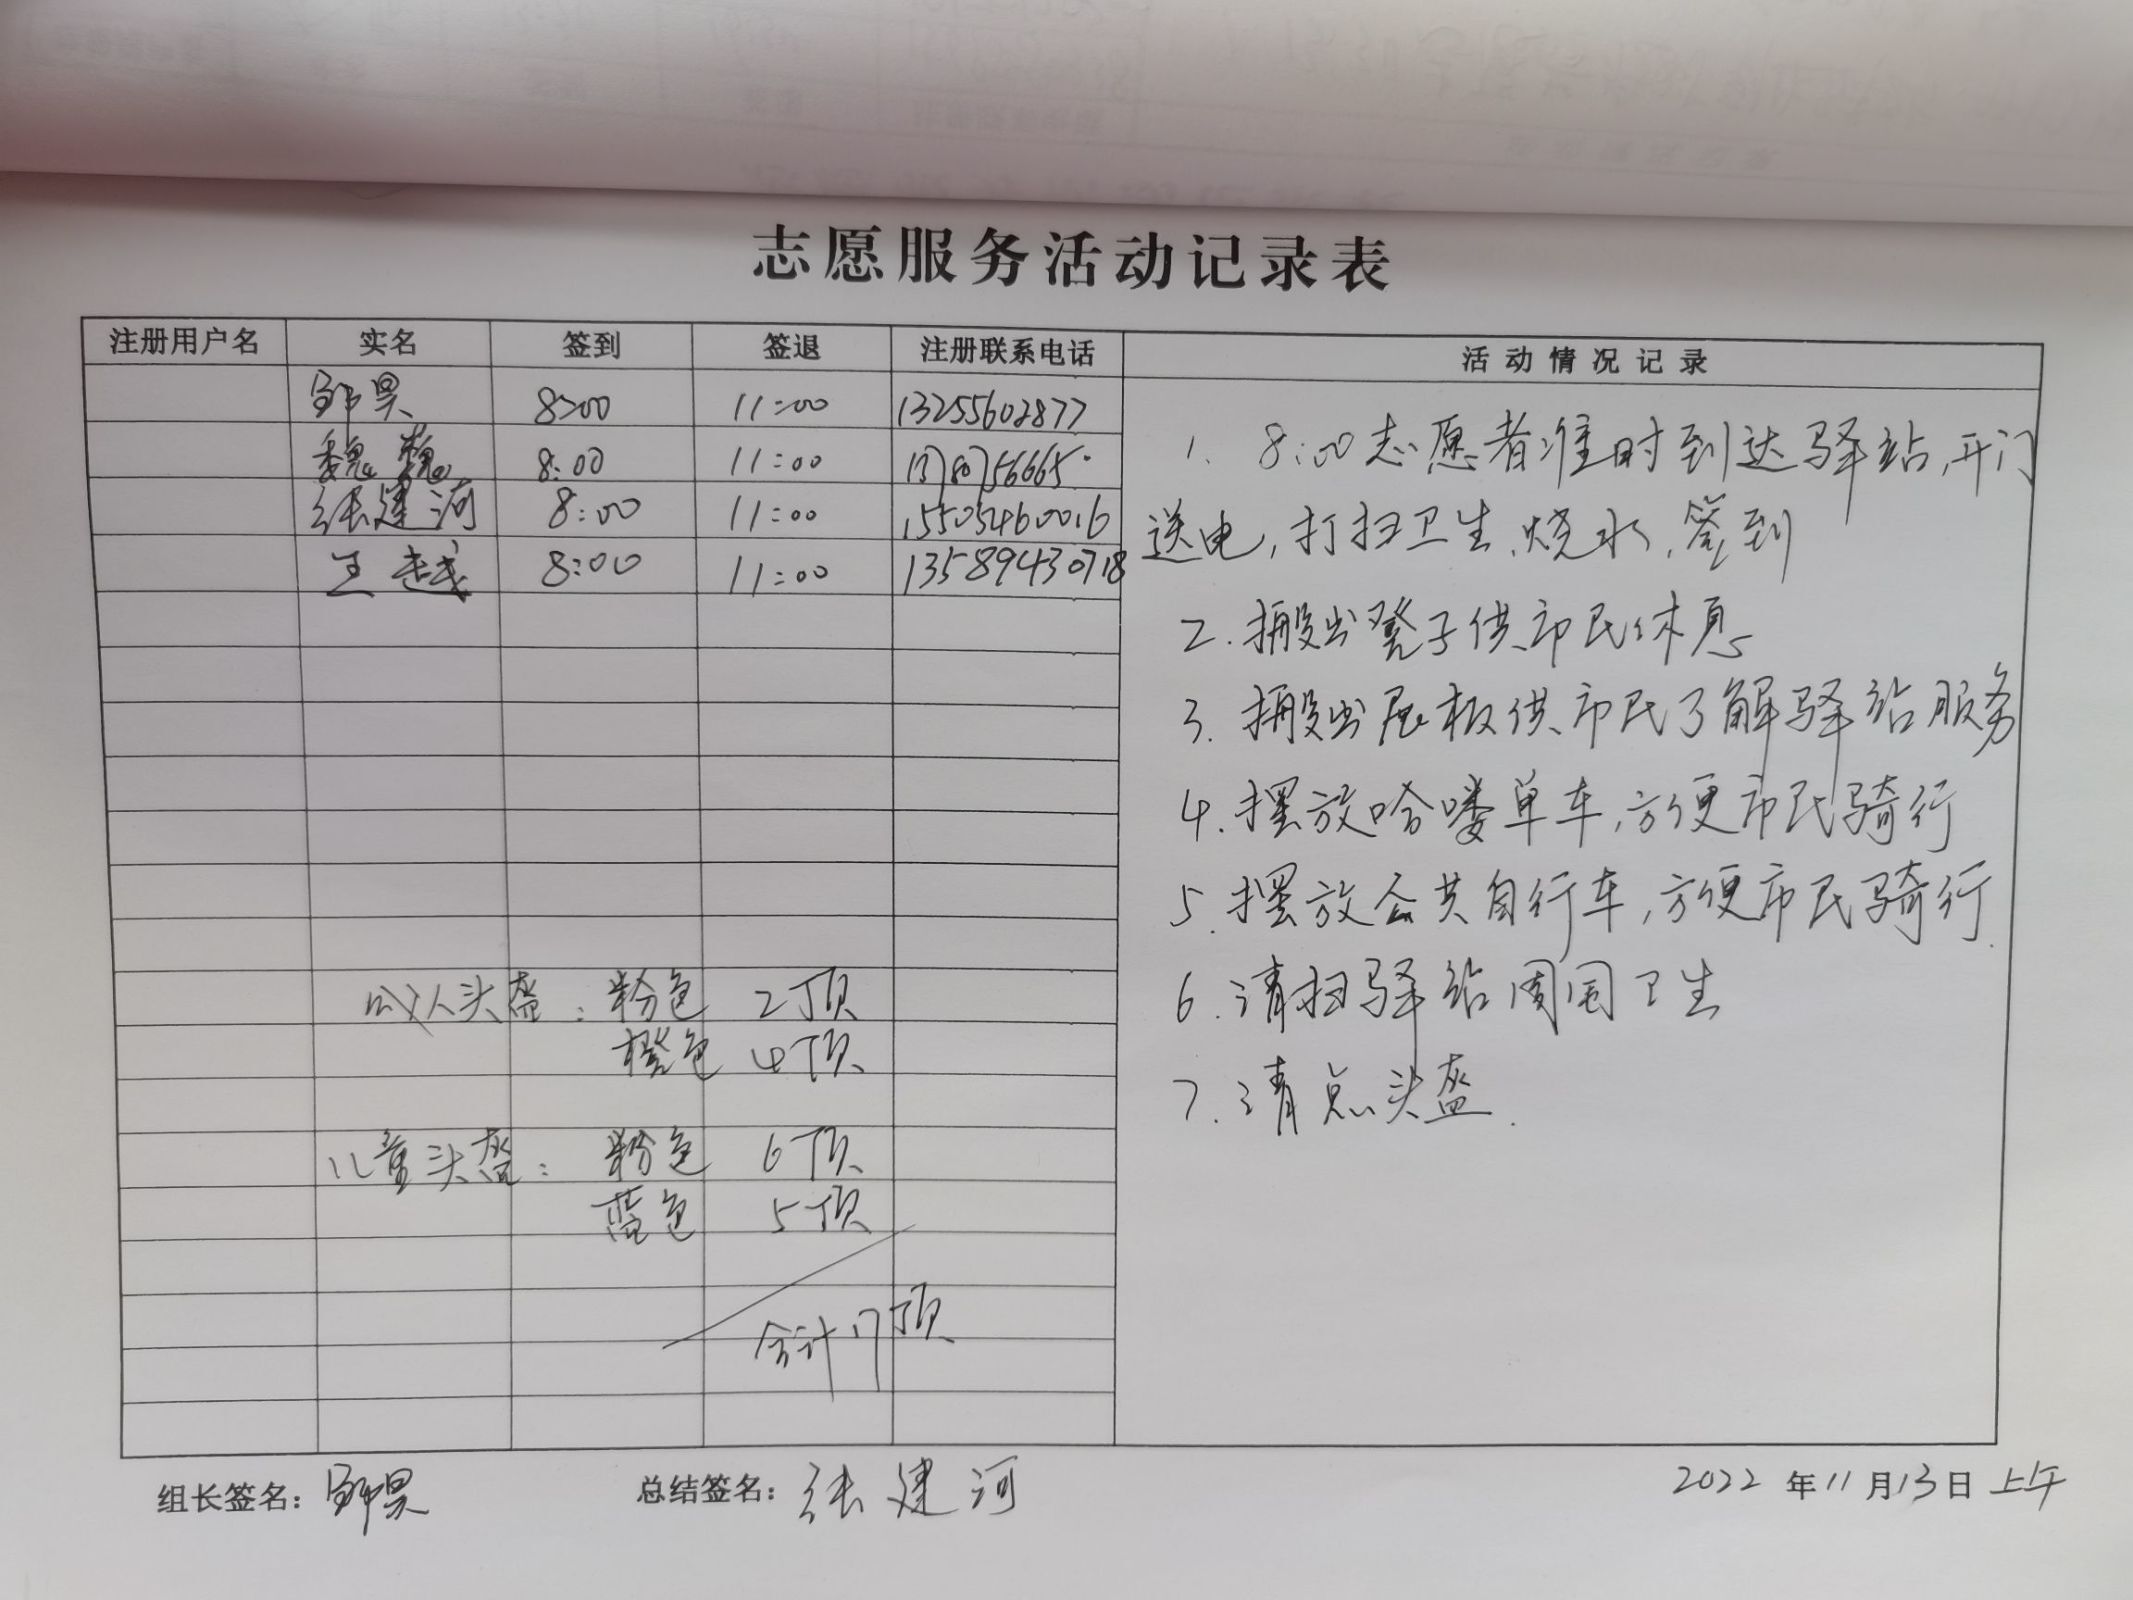 志愿服务活动记录表
注册用户名 实名 签到 签退 注册联系电话 活动情况记录
邹昊 8:00 11:00 13255602877
魏巍 8:00 11:00 13780756665
张建河 8:00 11:00 15505460016
王越 8:00 11:00 135899430718
1、8:00志愿者准时到达驿站,开门
送电,打扫卫生、烧水、签到
2.搬出凳子供市民休息
3.搬出展板供市民了解驿站服务
4.摆放哈喽单车,方便市民骑行
5.摆放公共自行车,方便市民骑行.
6.清扫驿站周围卫生
7.清点头盔.
成人头盔:粉色 2顶
橙色 4顶
儿童头盔:粉色 6顶
蓝色 5顶
合计17顶
组长签名:邹昊 总结签名:张建河 2022年11月13日上午